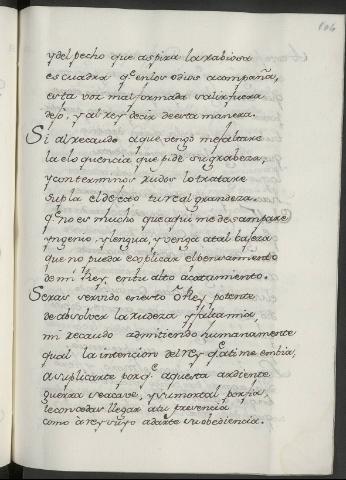 106
y del pecho que aspira la rabiosa
escuadra q̃ en los odios acompaña,
esta voz mal formada salir fuera
desó, y al rey decir de esta manera.
Si al recaudo a que vengo me faltare
la eloquencia que pide su grabeza,
y con terminos rudos lo tratare
supla el defeto tu real grandeza.
q̃ no es mucho que aqui me desampare
yngenio, y lengua, y venga a tal bajeza
que no pueda explicar el pensamiento
de mi Rey, en tu alto acatamiento.
Seras servido en esto ô Rey potente
de absolver la rudeza y falta mia,
mi recaudo admitiendo humanamente
qual la intencion del rey q̃ a ti me embia,
a suplicarte por q̃ aquesta ardiente
guerra se acave, y su mortal porfia,
le concedas llegar a tu presencia
como a rey suyo a darte su obediencia.